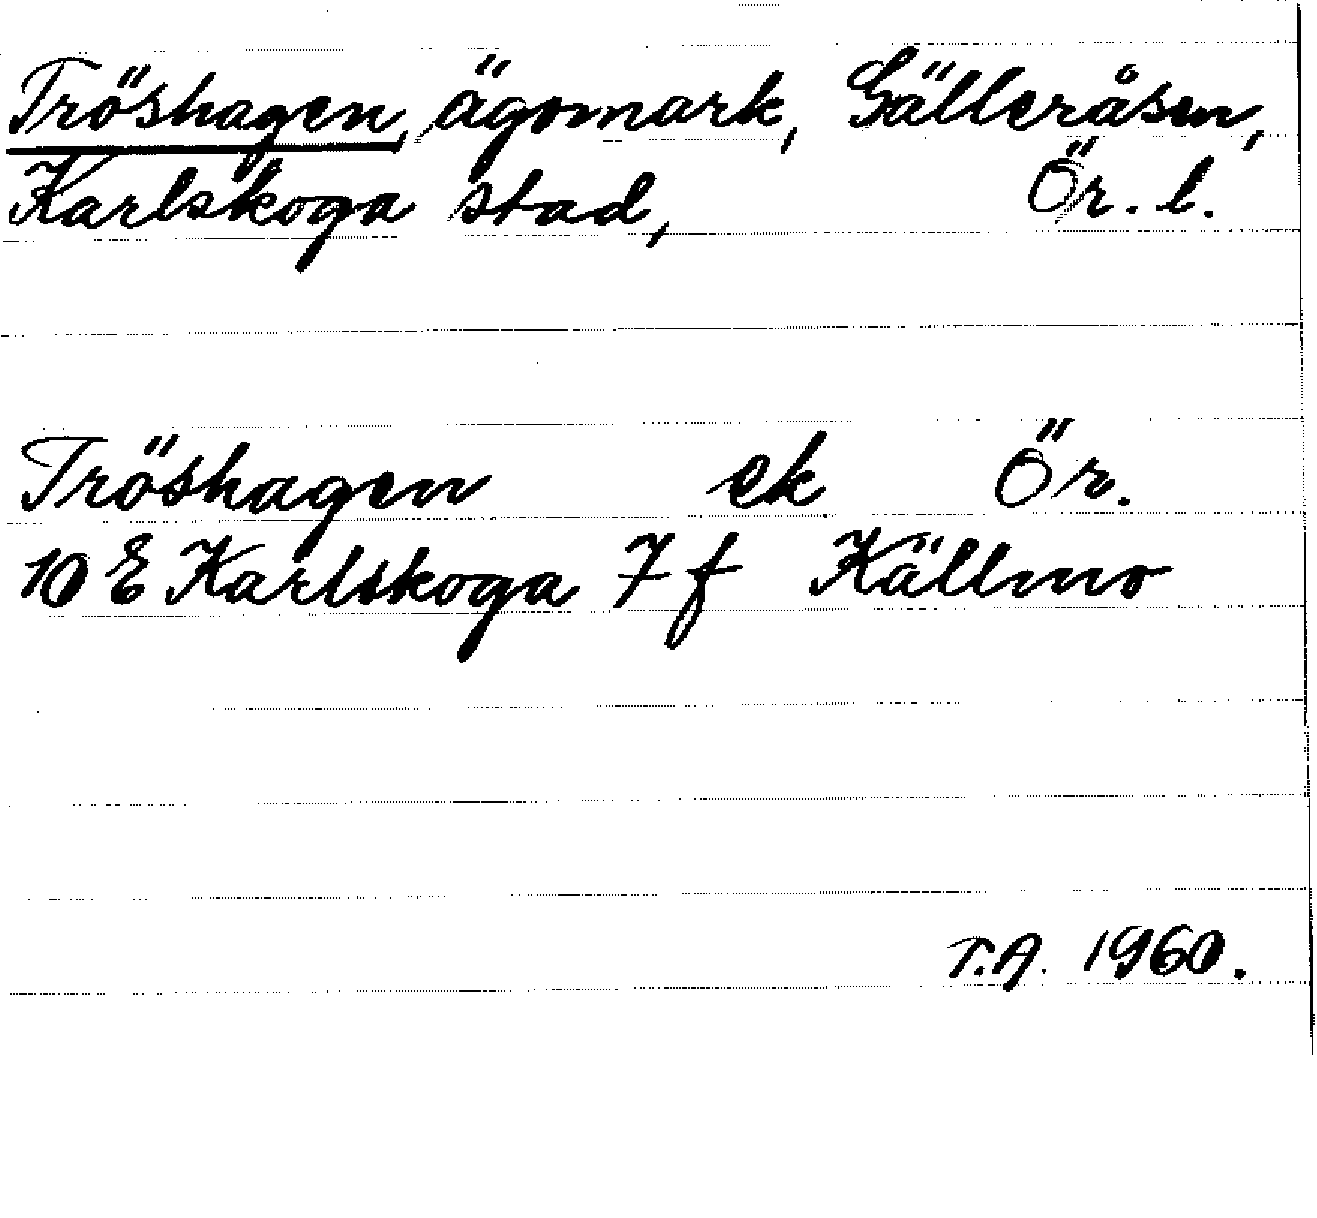 Tröshagen, ägomark, Gälleråsen,
Karlskoga stad, Ör. l.
Tröshagen ek Ör.
10 E Karlskoga 7 f Källmo
T.A. 1960.